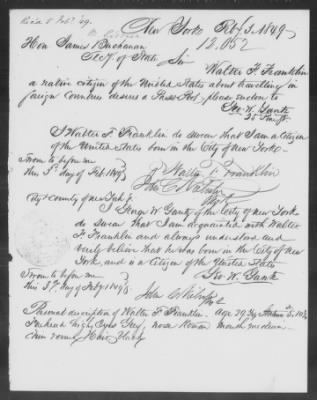 Recd 5 Feby 49.
New York Feby 3. 1849
12.052
Hon James Buchanan
Secy of State
Sir
Walter F. Franklin
a native citizen of the United States about travelling in
foreign countries desires a Pass Port. please enclose to
Geo. W. Gantz
25
I Walter F. Franklin do swear that I am a citizen
of the United States born in the City of New York
Sworn to before me
this 3d day of Feb 1849
Walter F. Franklin
John
City & County of New York ss.
I George W Gantz of the City of New York
do swear that I am acquainted with Walter
F. Franklin and always understood and
verily believe that he was born in the City of New
York, and is a Citizen of the United States
Sworn to before me
this 3d day of Feby 1849
Geo W. Gantz
John
Personal description of Walter F. Franklin. Age 29
Forehead high, Eyes Grey, nose Roman mouth medium
chin round, Hair